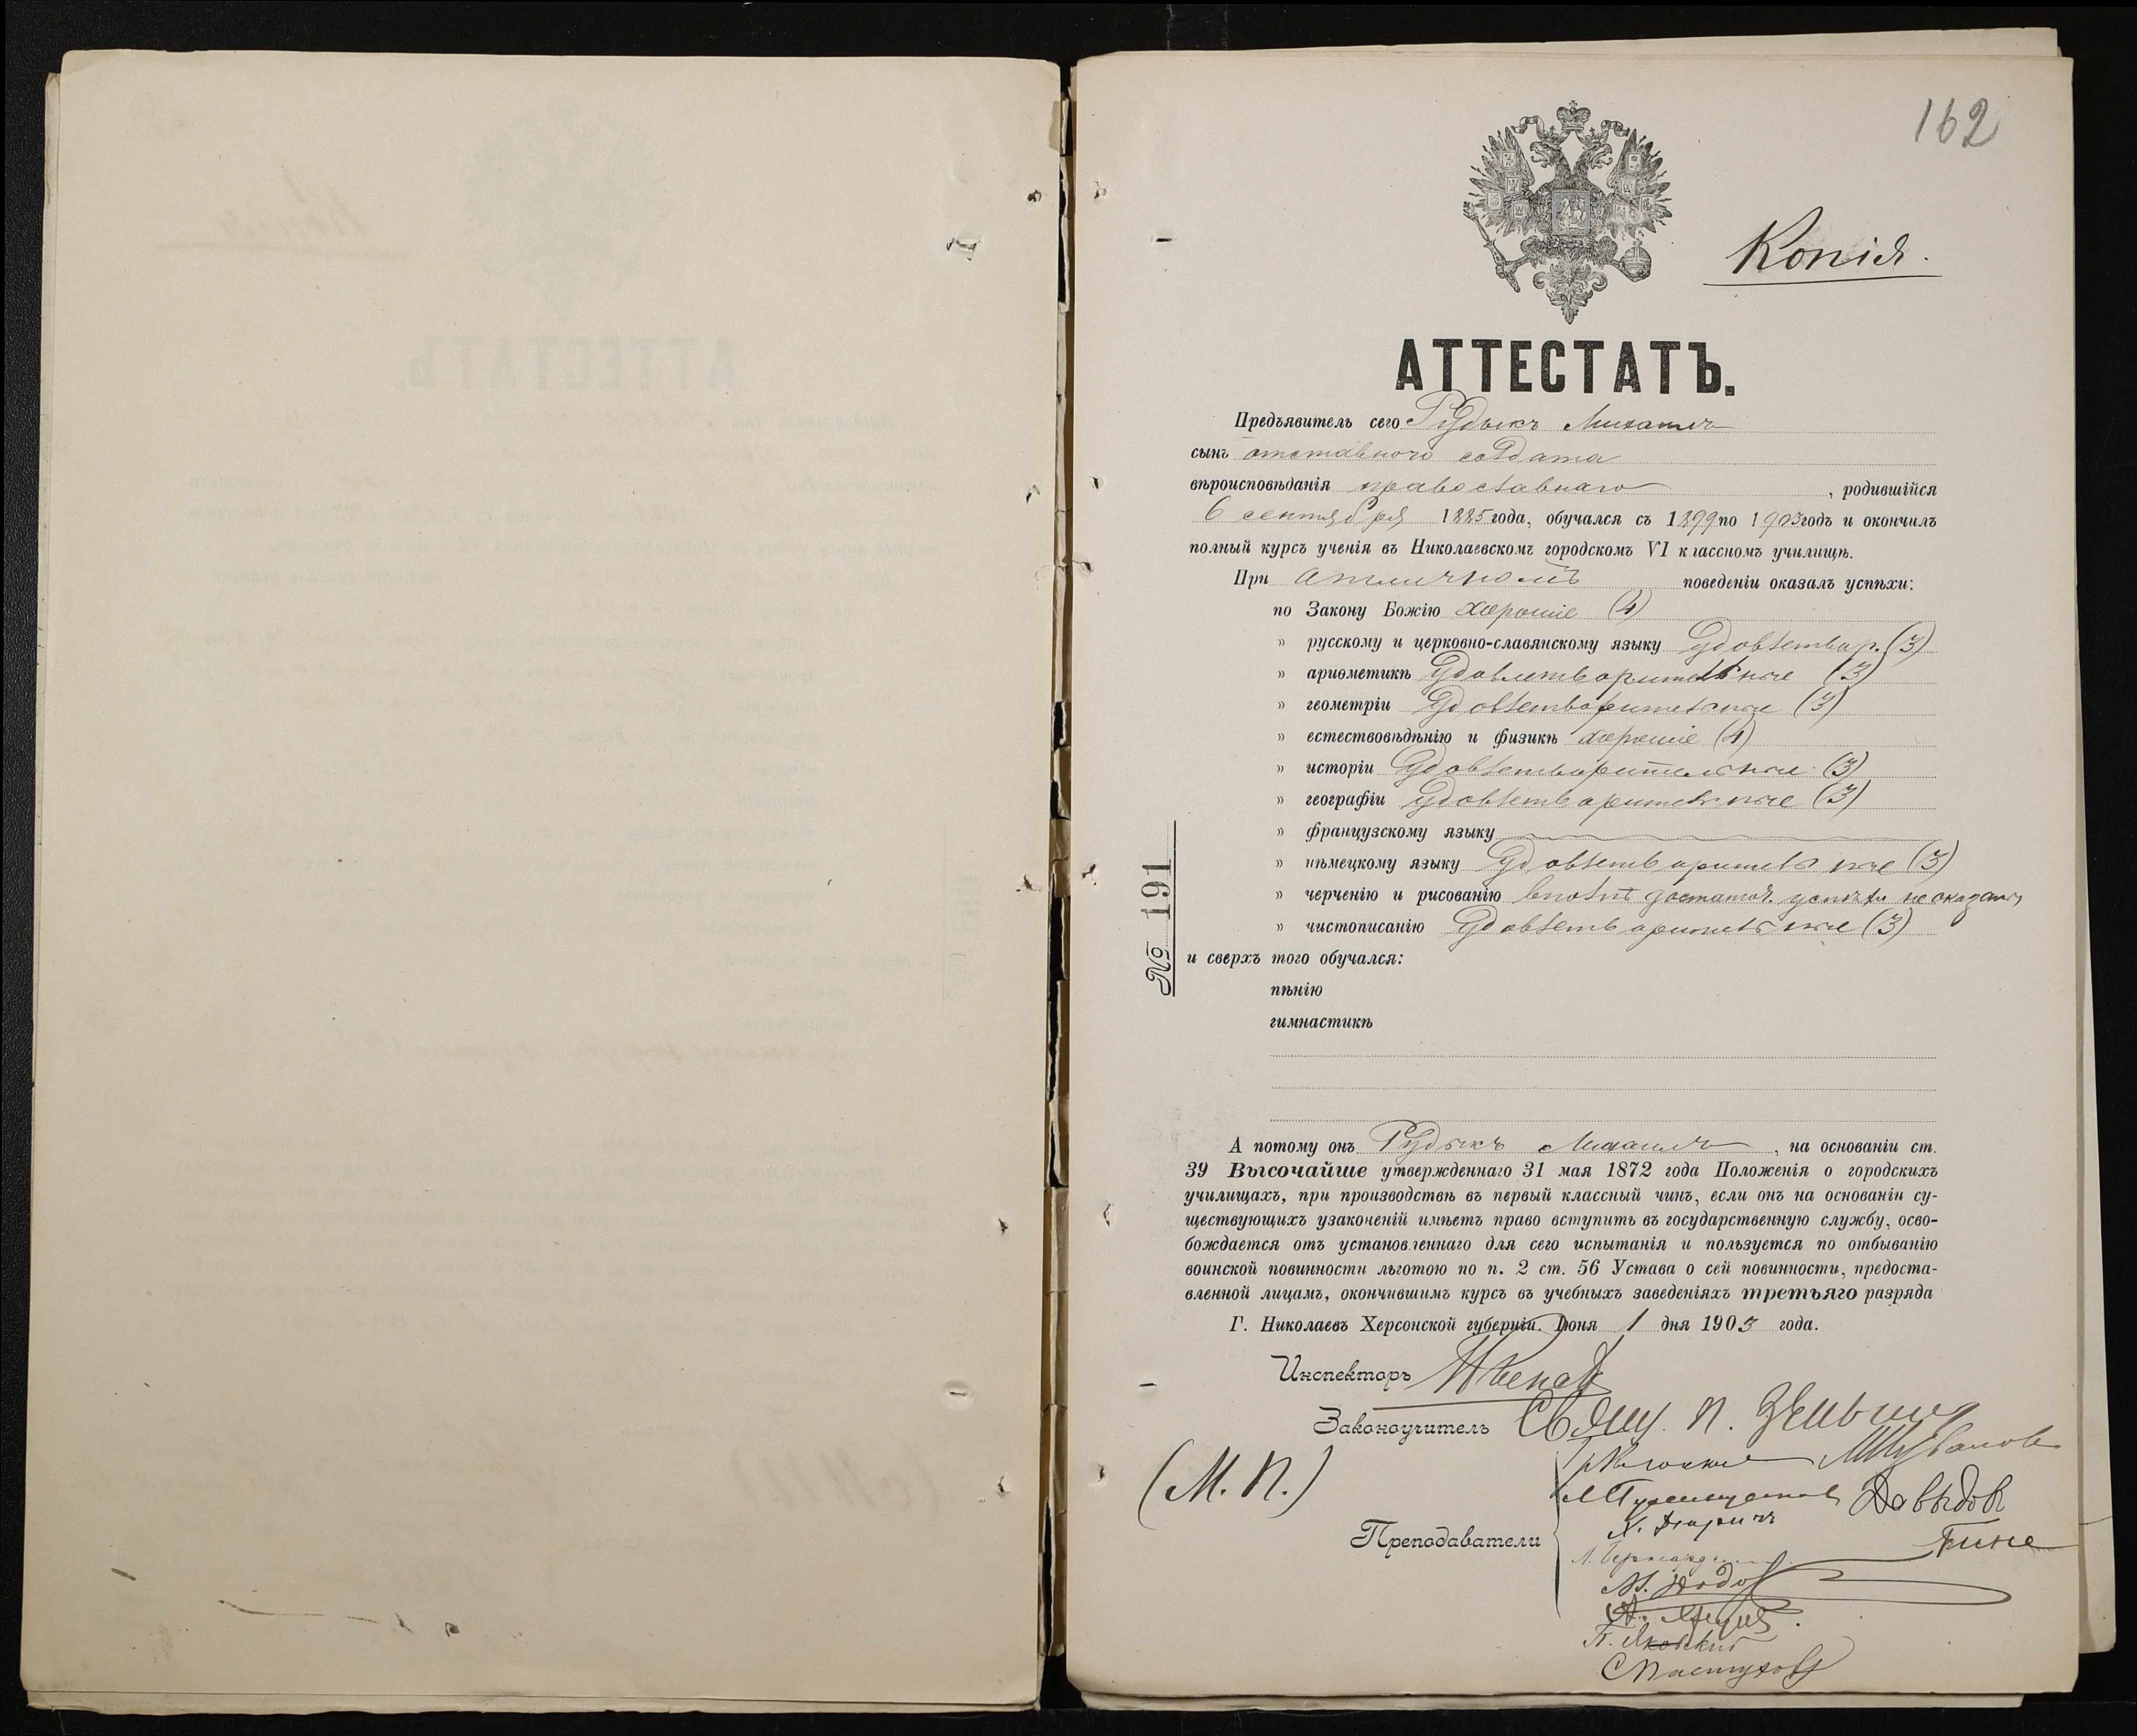 162
Копія.
АТТЕСТАТЪ.
Предъявитель сего Рудыкъ Михаилъ
сынъ отставного солдата
вѣроисповѣданія православнаго, родившійся
6 сентября 1885 года, обучался съ 1899 по 1903 годъ и окончилъ
полный курсъ ученія въ Николаевскомъ городскомъ VI классномъ училищѣ.
При отличномъ поведеніи оказалъ успѣхи:
по Закону Божію хорошіе (4)
" русскому и церковно-славянскому языку удовлетвор. (3)
" ариѳметикѣ удовлетворительные (3)
" геометріи удовлетворительные (3)
" естествовѣдѣнію и физикѣ хорошіе (4)
" исторіи удовлетворительные (3)
" географіи удовлетворительные (3)
" французскому языку
" нѣмецкому языку удовлетворительные (3)
" черченію и рисованію вполнѣ достаточ. успѣха не оказалъ
" чистописанію удовлетворительные (3)
№ 191
и сверхъ того обучался:
пѣнію
гимнастикѣ
А потому онъ Рудыкъ Михаилъ, на основаніи ст.
39 Высочайше утвержденнаго 31 мая 1872 года Положенія о городскихъ
училищахъ, при производствѣ въ первый классный чинъ, если онъ на основаніи су-
ществующихъ узаконеній имѣетъ право вступить въ государственную службу, осво-
бождается отъ установленнаго для сего испытанія и пользуется по отбыванію
воинской повинности льготою по п. 2 ст. 56 Устава о сей повинности, предоста-
вленной лицамъ, окончившимъ курсъ въ учебныхъ заведеніяхъ третьяго разряда
Г. Николаевъ Херсонской губерніи. Іюня 1 дня 1903 года.
Инспекторъ
Законоучитель Свящ. П.
(М. П.)
Преподаватели
Давыдовъ
С Пастуховъ